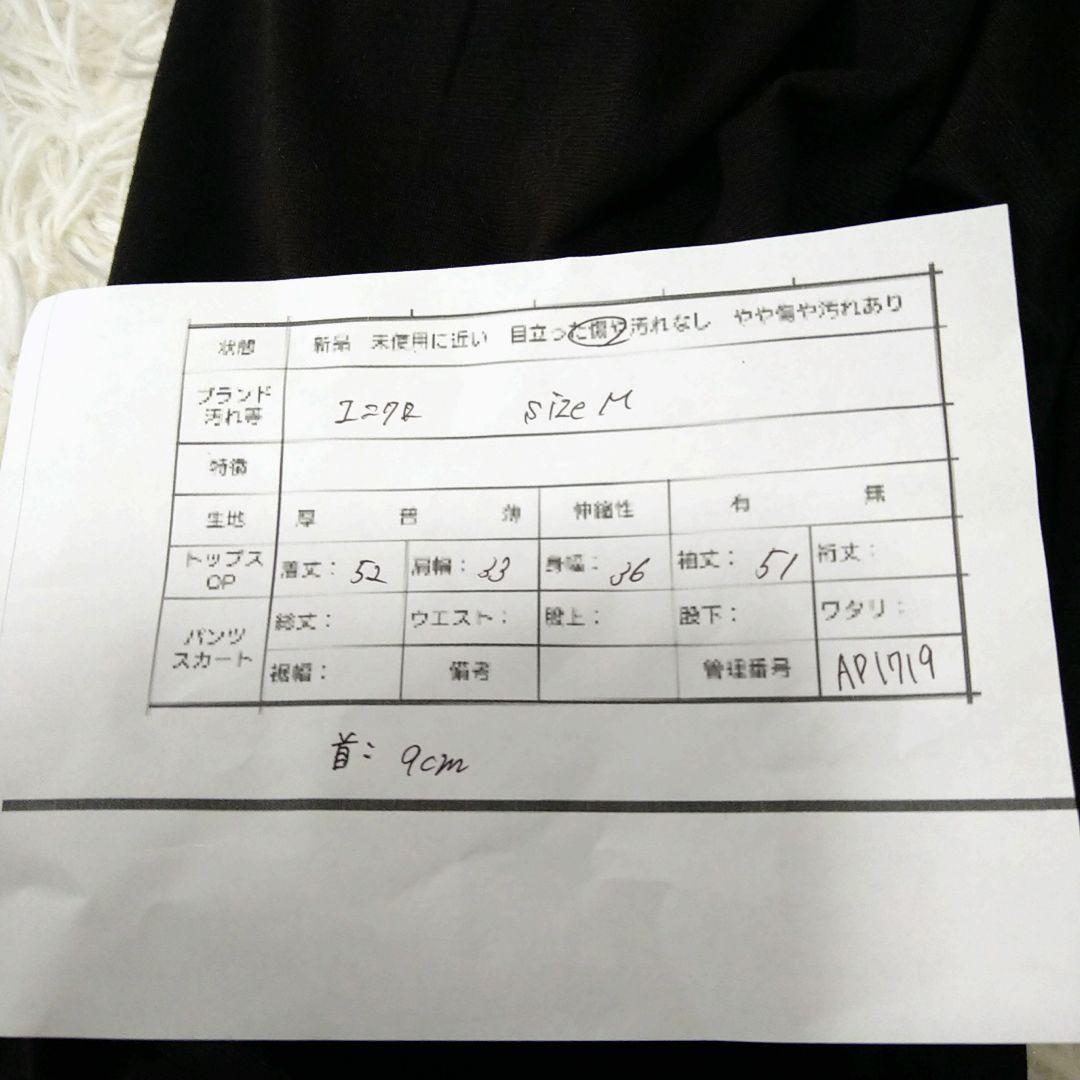 状態 新品 未使用に近い 目立った傷や汚れなし やや傷や汚れあり
ブランド
汚れ等 size M
特徴
生地 厚 普 薄 伸縮性 有 無
トップス
OP 着丈：52 肩幅：33 身幅：36 袖丈：51 裄丈：
パンツ
スカート 総丈： ウエスト： 股上： 股下： ワタリ：
裾幅： 備考 管理番号 AP1719
首：9cm